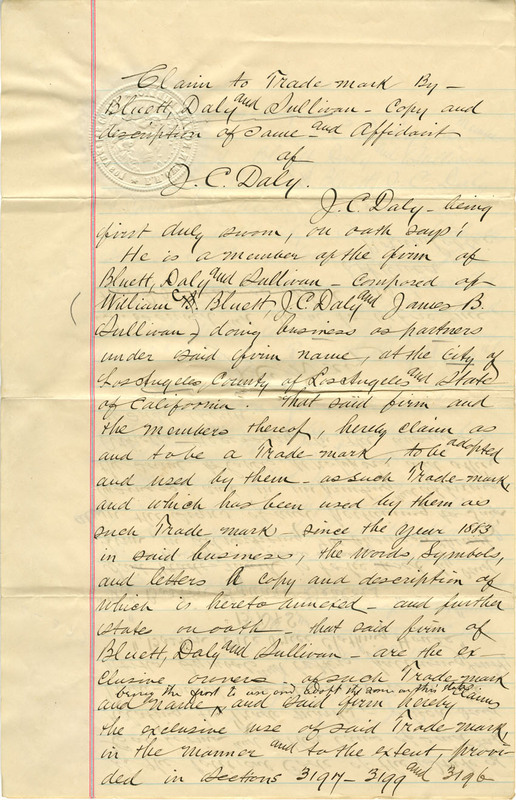 Claim to Trade mark By -
Bluett, Daly and Sullivan - Copy and
discription of same - and Affidavit
of
J. C. Daly.
J. C. Daly - being
first duly sworn, on oath says:
He is a member of the firm of
Bluett, Daly and Sullivan - composed of
William Bluett J. C. Daly and James B.
Sullivan - doing business as partners
under said firm name, at the City of
Los Angeles, County of Los Angeles and State
of California. That said firm and
the members thereof, hereby claim as
and to be a Trade-mark, to be adopted
and used by them - as such Trade-mark,
and which has been used by them as
such Trade mark - since the year 1883
in said business, the words, symbols,
and letters A copy and description of
which is hereto annexed - and further
states on oath - that said firm of
Bluett, Daly and Sullivan - are the ex
clusive owners of such Trade-mark
being the first to use and adopt the same in this State
and name, and said firm hereby claims
the exclusive use of said Trade mark,
in the manner and to the extent, provi-
ded in Sections 3197 - 3199 and 3196